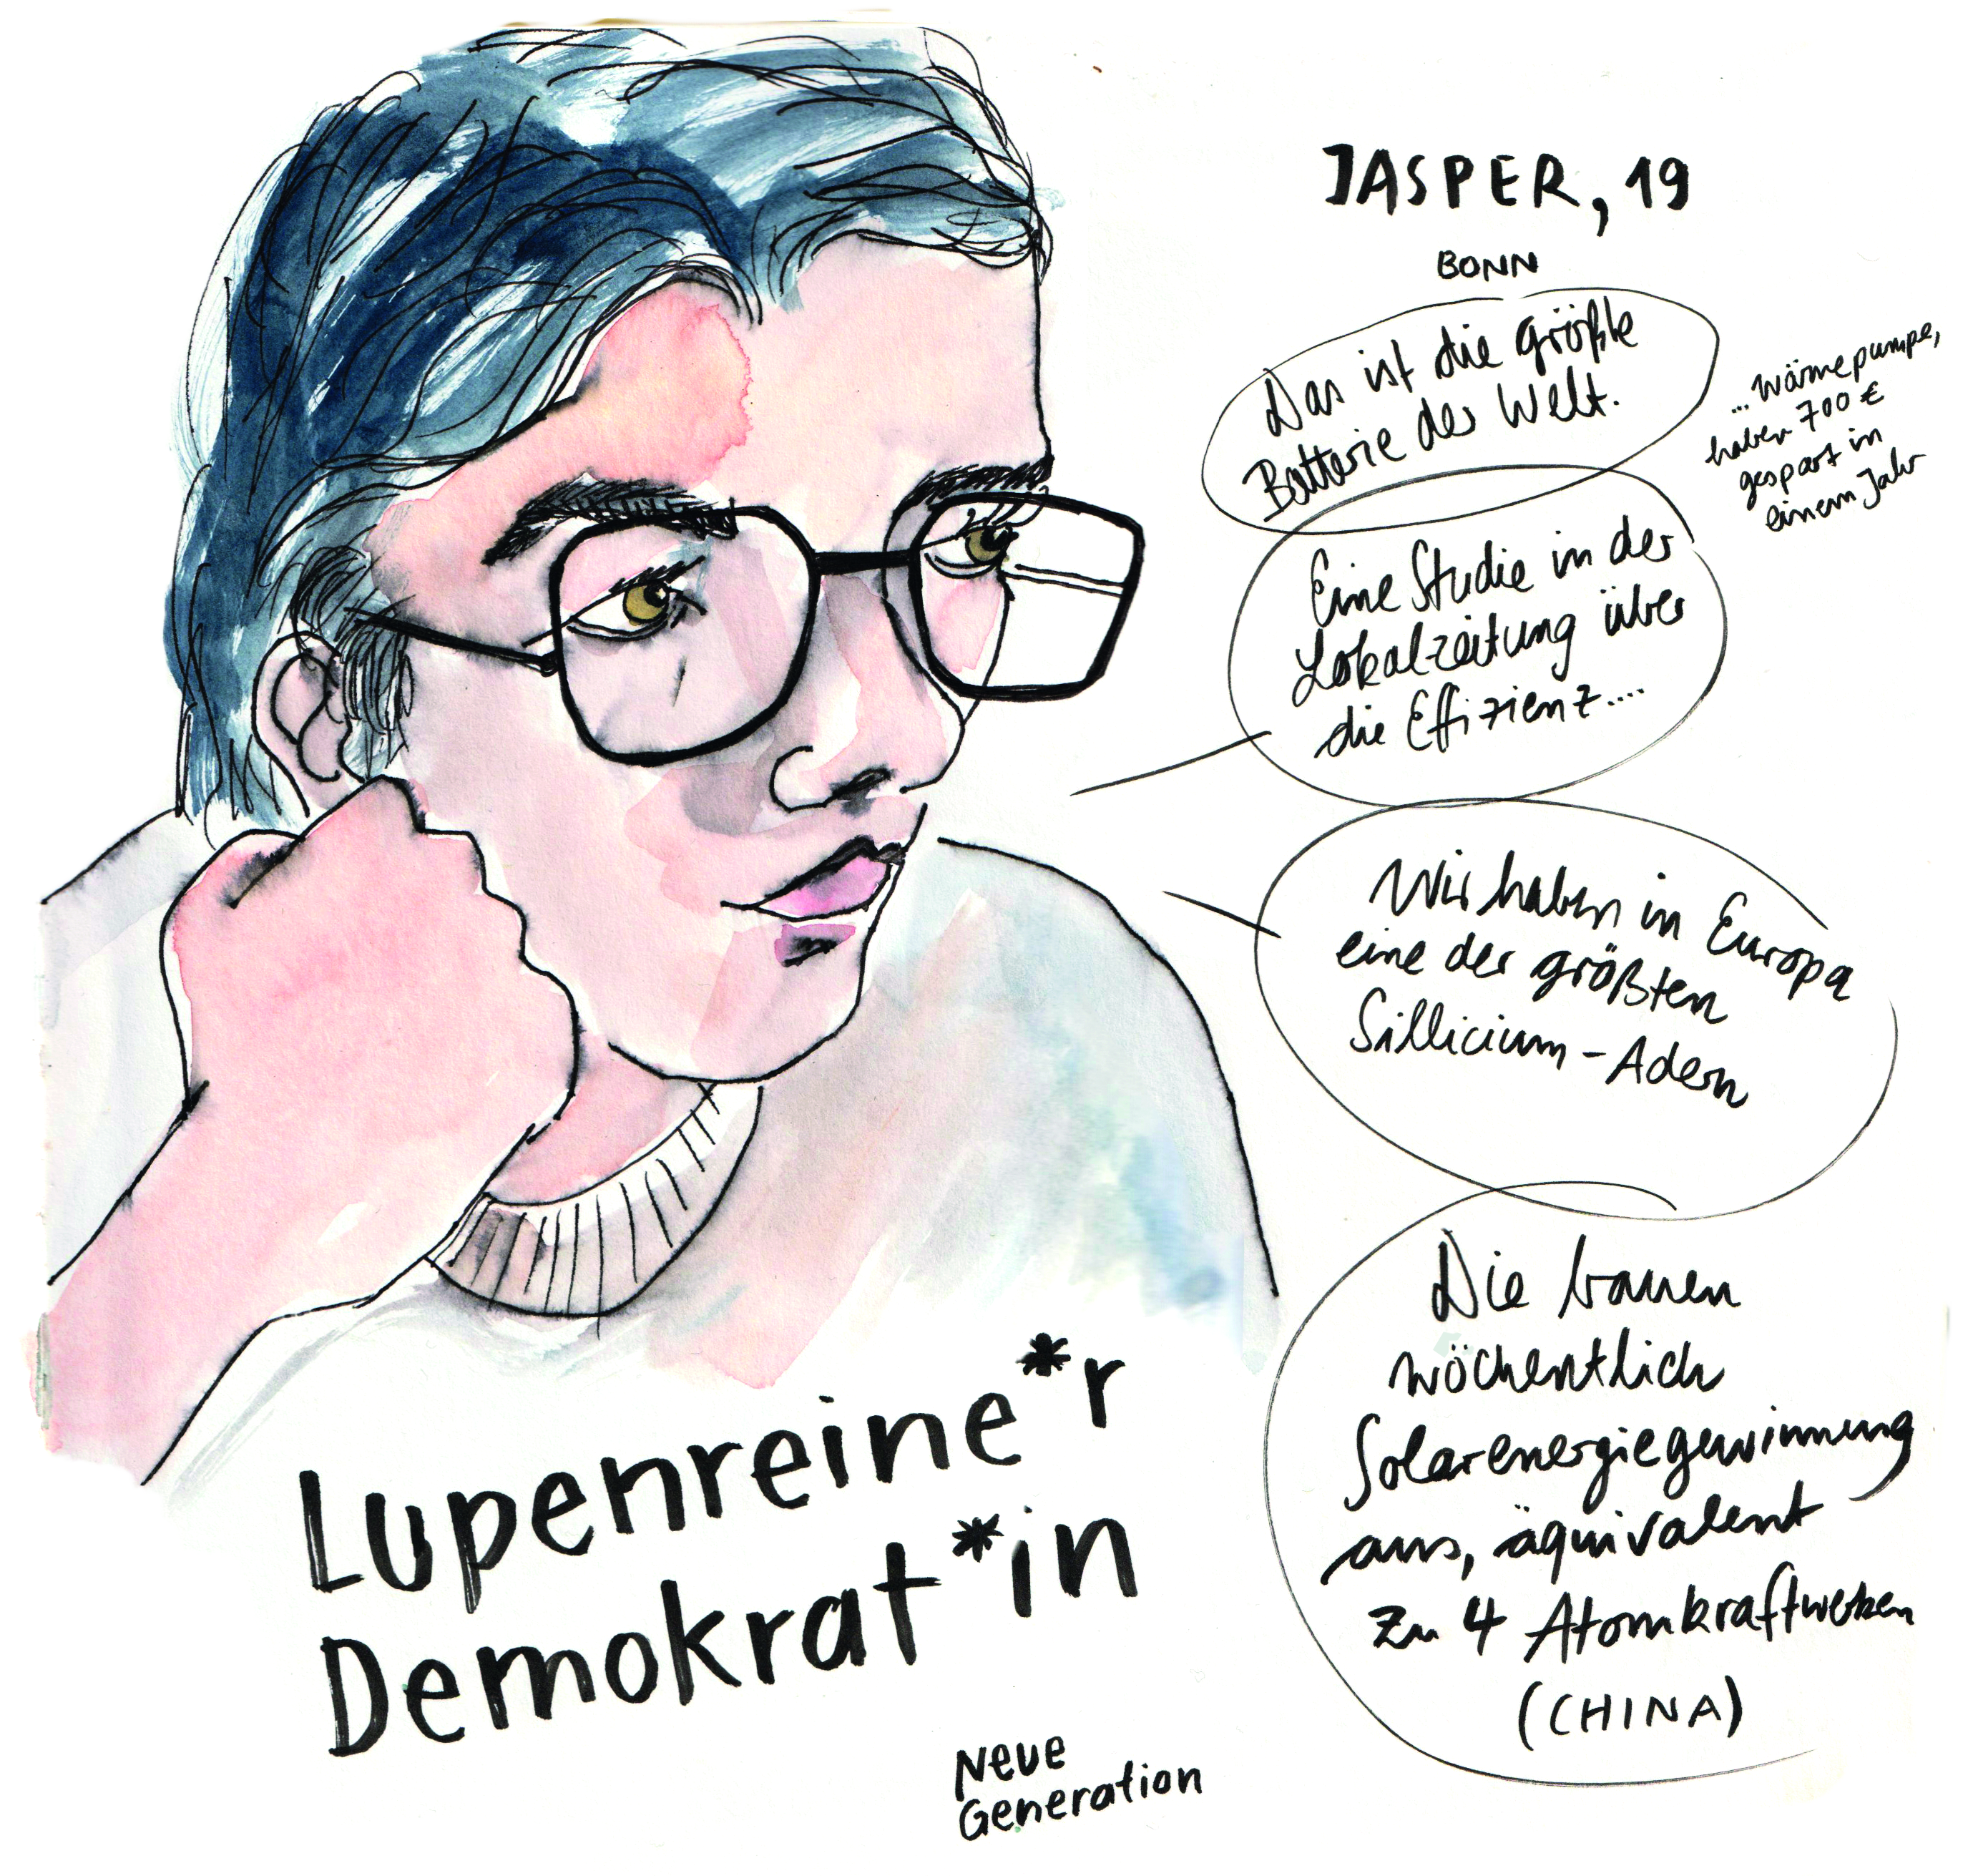 JASPER, 19
BONN
Das ist die größte
Batterie der Welt.
... Wärmepumpe,
haben 700 €
gespart in
einem Jahr
Eine Studie in der
Lokalzeitung über
die Effizienz....
Wir haben in Europa
eine der größten
Sillicium-Adern
Die bauen
wöchentlich
Solarenergiegewinnung
aus, äquivalent
zu 4 Atomkraftwerken
(CHINA)
Lupenreine*r
Demokrat*in
Neue
Generation